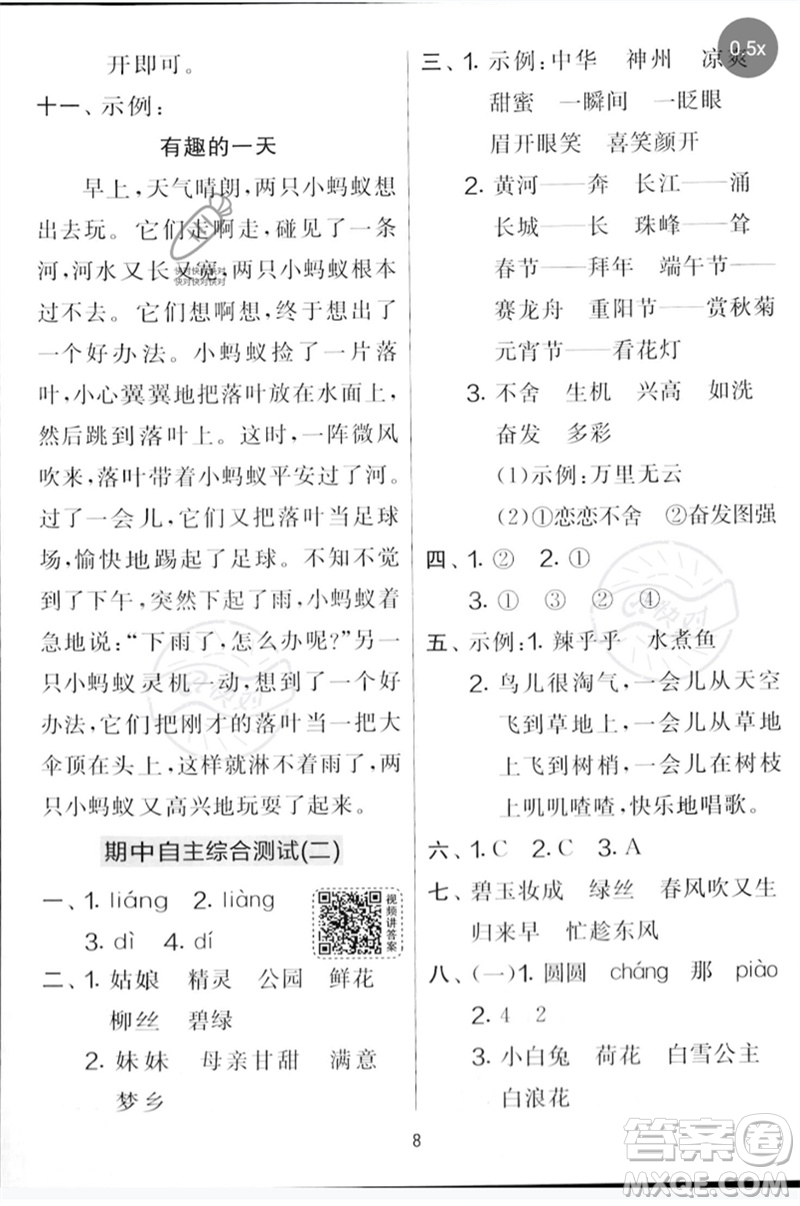 开即可。
十一、示例：
有趣的一天
早上，天气晴朗，两只小蚂蚁想
出去玩。它们走啊走，碰见了一条
河，河水又长又宽，两只小蚂蚁根本
过不去。它们想啊想，终于想出了
一个好办法。小蚂蚁捡了一片落
叶，小心翼翼地把落叶放在水面上，
然后跳到落叶上。这时，一阵微风
吹来，落叶带着小蚂蚁平安过了河。
过了一会儿，它们又把落叶当足球
场，愉快地踢起了足球。不知不觉
到了下午，突然下起了雨，小蚂蚁着
急地说：“下雨了，怎么办呢？”另一
只小蚂蚁灵机一动，想到了一个好
办法，它们把刚才的落叶当一把大
伞顶在头上，这样就淋不着雨了，两
只小蚂蚁又高兴地玩耍了起来。
期中自主综合测试(二)
一、1. liáng 2. liàng
3. dì 4. dí
视频讲答案
二、1. 姑娘 精灵 公园 鲜花
柳丝 碧绿
2. 妹妹 母亲甘甜 满意
梦乡
0.5x
三、1. 示例：中华 神州 凉爽
甜蜜 一瞬间 一眨眼
眉开眼笑 喜笑颜开
2. 黄河——奔 长江——涌
长城——长 珠峰——耸
春节——拜年 端午节——
赛龙舟 重阳节——赏秋菊
元宵节——看花灯
3. 不舍 生机 兴高 如洗
奋发 多彩
(1)示例：万里无云
(2)①恋恋不舍 ②奋发图强
四、1. ② 2. ①
3. ① ③ ② ④
五、示例：1. 辣乎乎 水煮鱼
2. 鸟儿很淘气，一会儿从天空
飞到草地上，一会儿从草地
上飞到树梢，一会儿在树枝
上叽叽喳喳，快乐地唱歌。
六、1. C 2. C 3. A
七、碧玉妆成 绿丝 春风吹又生
归来早 忙趁东风
八、(一)1. 圆圆 cháng 那 piào
2. 4 2
3. 小白兔 荷花 白雪公主
白浪花
8
答案卷
MXQE.COM
快对快对快对
快对快对快对